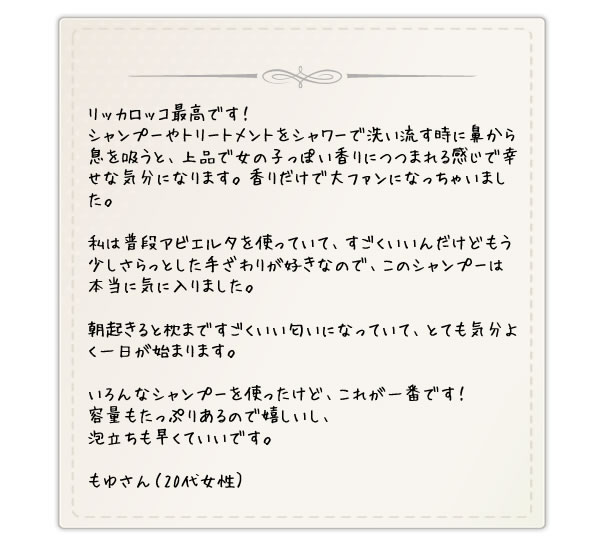 リッカロッコ最高です!
シャンプーやトリートメントをシャワーで洗い流す時に鼻から
息を吸うと、上品で女の子っぽい香りにつつまれる感じで幸
せな気分になります。香りだけで大ファンになっちゃいまし
た。
私は普段アビエルタを使っていて、すごくいいんだけどもう
少しさらっとした手ざわりが好きなので、このシャンプーは
本当に気に入りました。
朝起きると枕まですごくいい匂いになっていて、とても気分よ
く一日が始まります。
いろんなシャンプーを使ったけど、これが一番です!
容量もたっぷりあるので嬉しいし、
泡立ちも早くていいです。
もゆさん(20代女性)